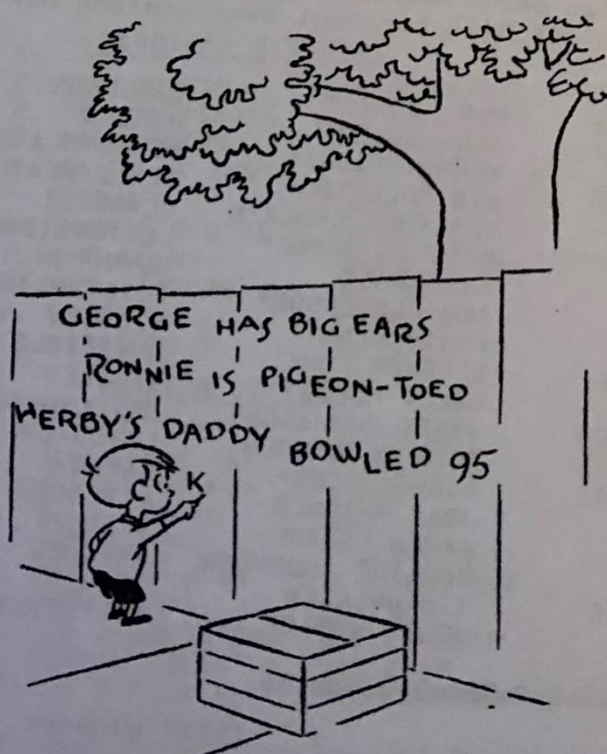 GEORGE HAS BIG EARS
RONNIE IS PIGEON-TOED
HERBY'S DADDY BOWLED 95
K